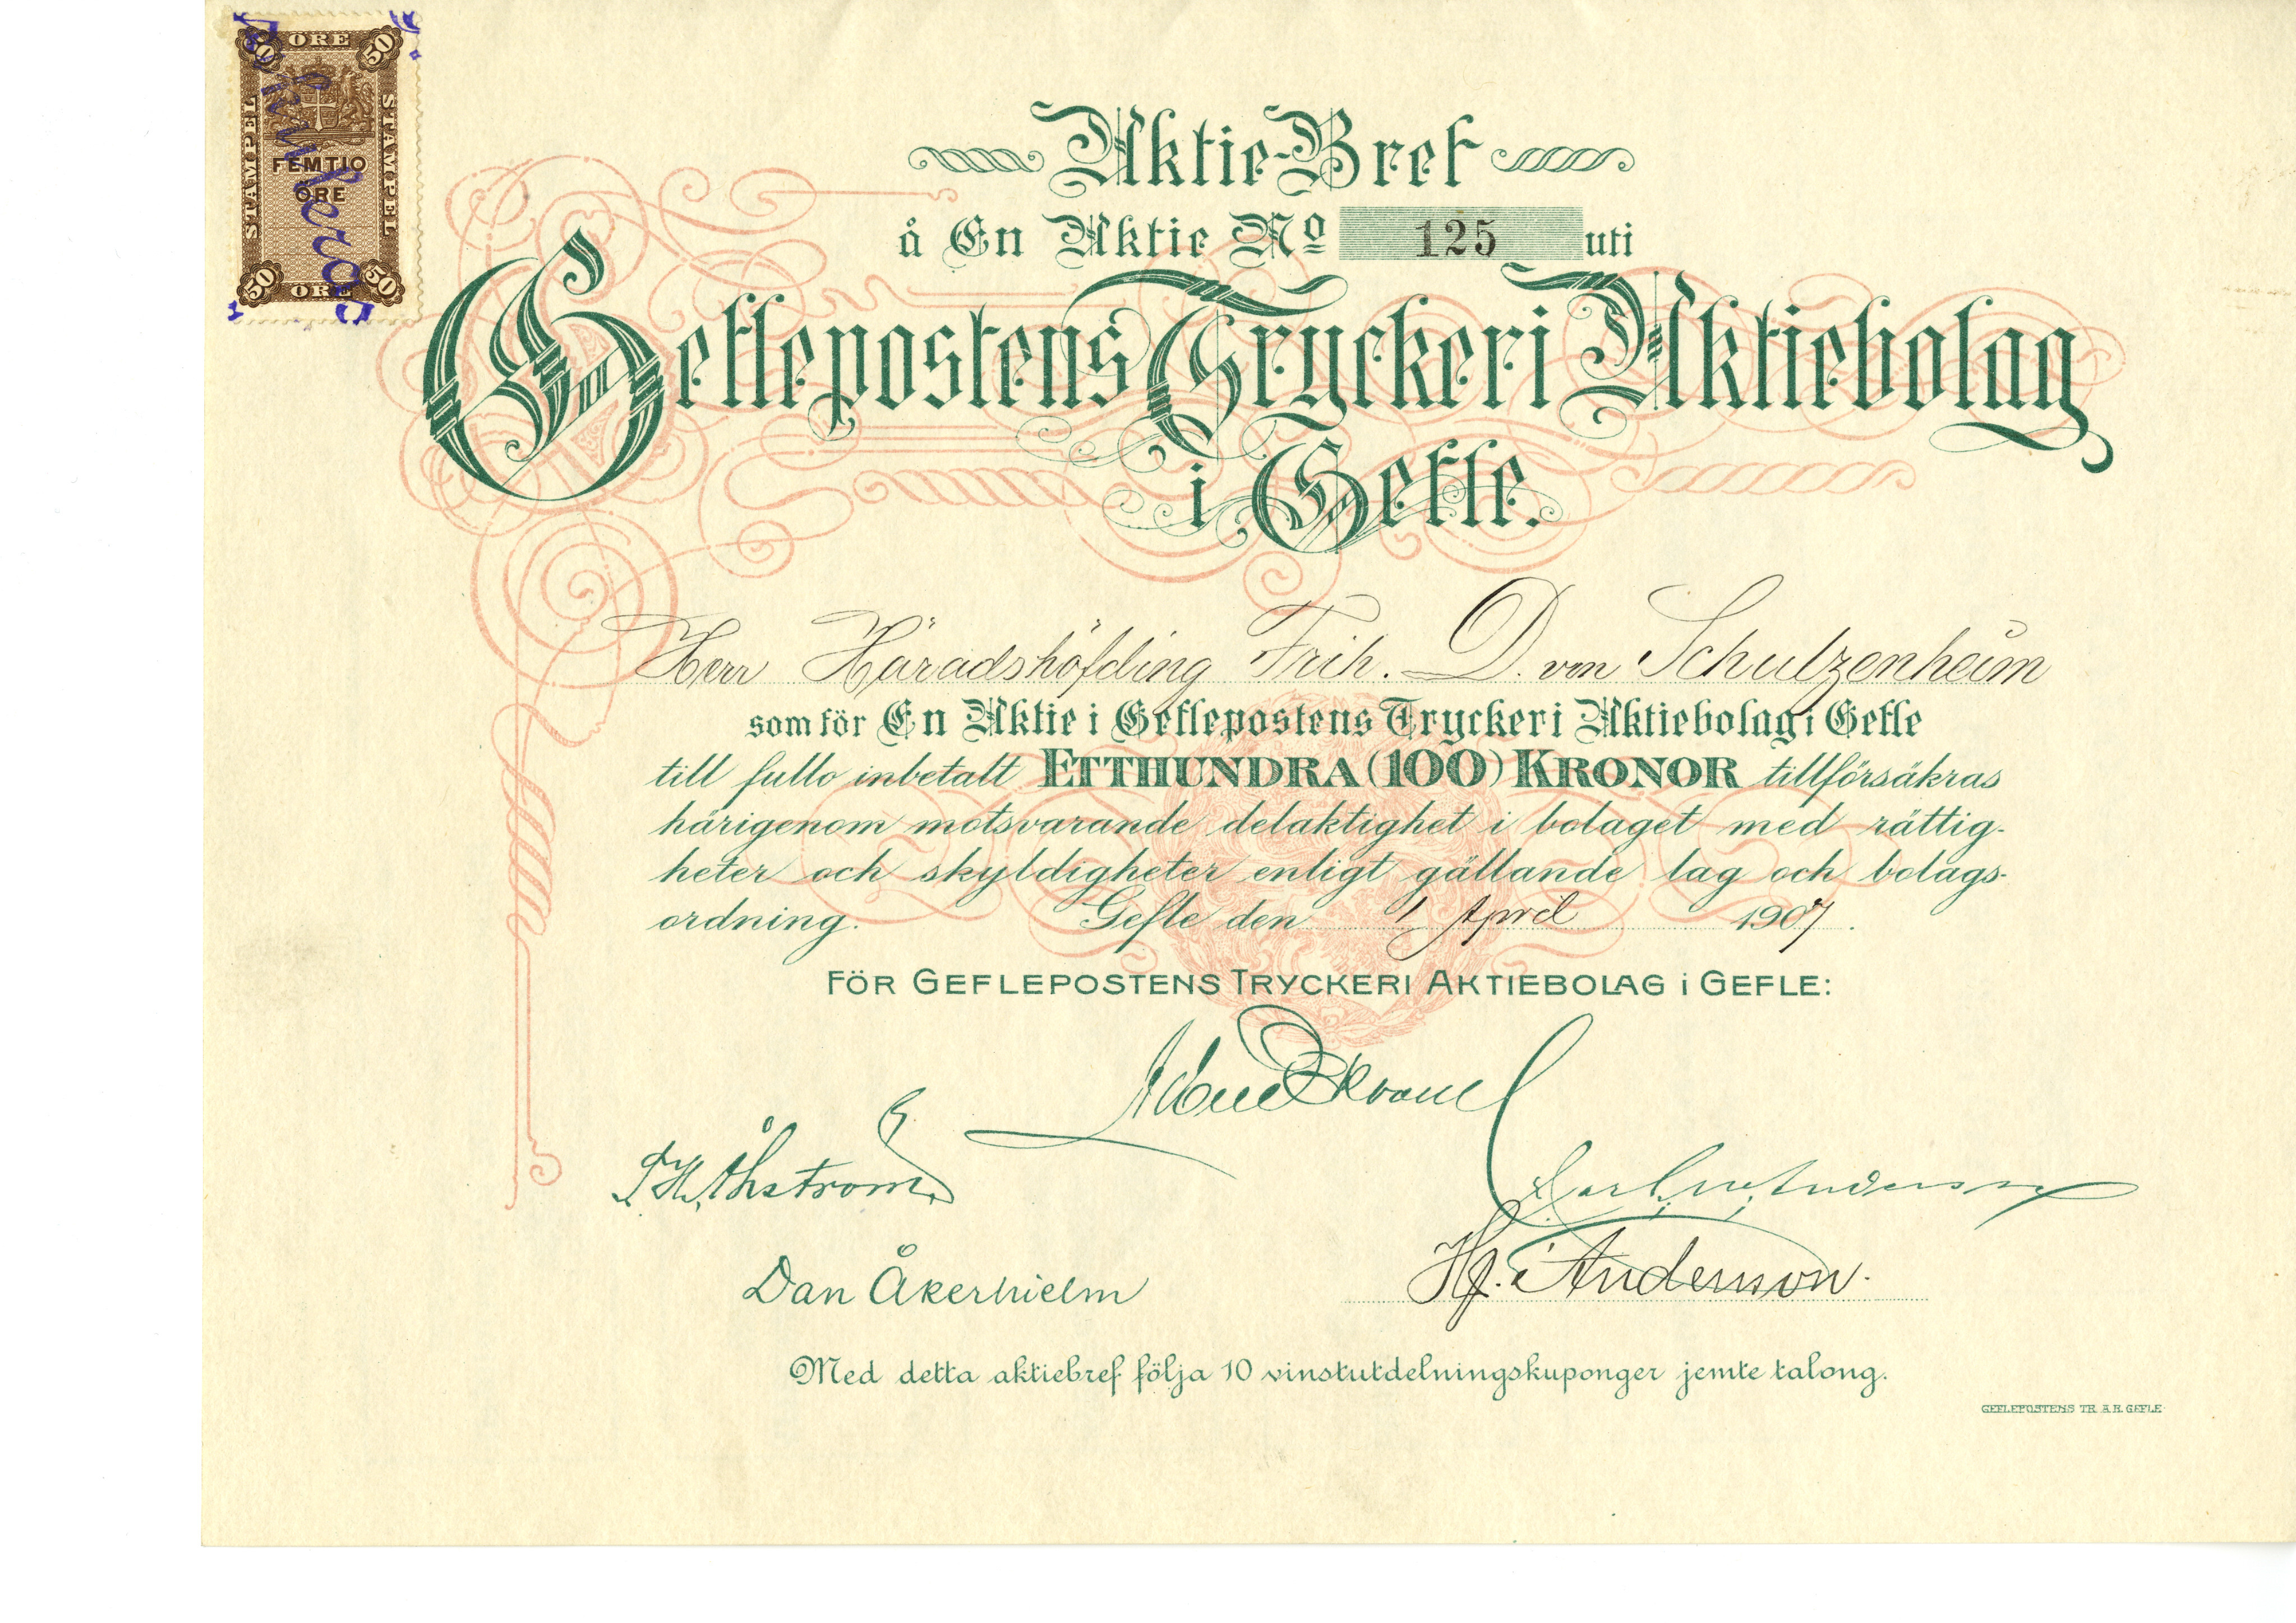 50 ÖRE 50
STAMPEL
STAMPEL
FEMTIO
ÖRE
50 ÖRE 50
Aktie-Bref
å En Aktie No 125 uti
Geflepostens Tryckeri Aktiebolag
i Gefle.
Herr Häradshöfding Frih. D. von Schulzenheim
som för En Aktie i Geflepostens Tryckeri Aktiebolag i Gefle
till fullo inbetalt ETTHUNDRA (100) KRONOR tillförsäkras
härigenom motsvarande delaktighet i bolaget med rättig-
heter och skyldigheter enligt gällande lag och bolags-
ordning. Gefle den 1 April 1907.
FÖR GEFLEPOSTENS TRYCKERI AKTIEBOLAG i GEFLE:
Åhström
Anderson
Dan Åkerhielm
Hj. Anderson.
Med detta aktiebref följa 10 vinstutdelningskuponger jemte talong.
GEFLEPOSTENS TR. A.B. GEFLE